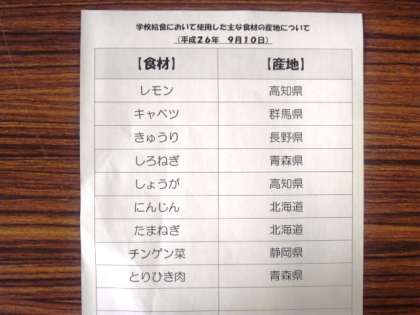 学校給食において使用した主な食材の産地について
(平成26年 9月10日)
【食材】 【産地】
レモン 高知県
キャベツ 群馬県
きゅうり 長野県
しろねぎ 青森県
しょうが 高知県
にんじん 北海道
たまねぎ 北海道
チンゲン菜 静岡県
とりひき肉 青森県